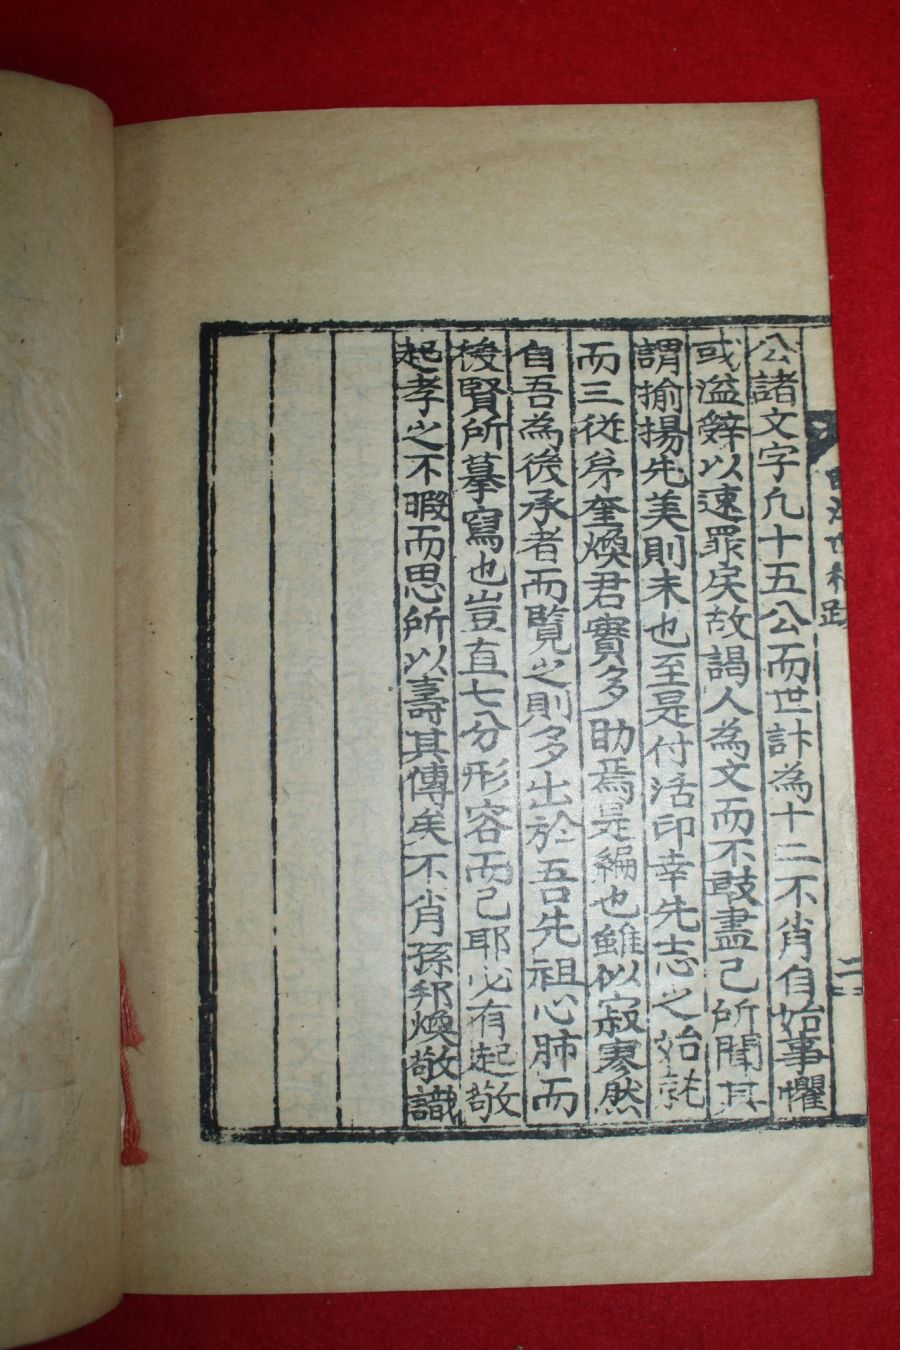 公諸文字凡十五公而世計為十二不肖自始事懼
或溢辭以速罪戾故謁人為文而不敢盡己所聞其
謂揄揚先美則未也至是付活印幸先志之始就
而三從弟奎煥君實多助焉是編也雖似寂寥然
自吾為後承者而覽之則多出於吾先祖心肺而
後賢所摹寫也豈直七分形容而已耶必有起敬
起孝之不暇而思所以壽其傳矣不肖孫邦煥敬識
二